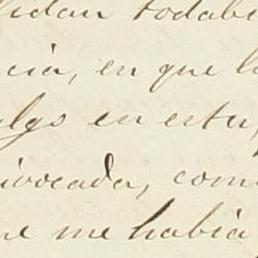 lidan todabi
cia, en que l
ulgo en esta,
ivocada, com
ne me habia